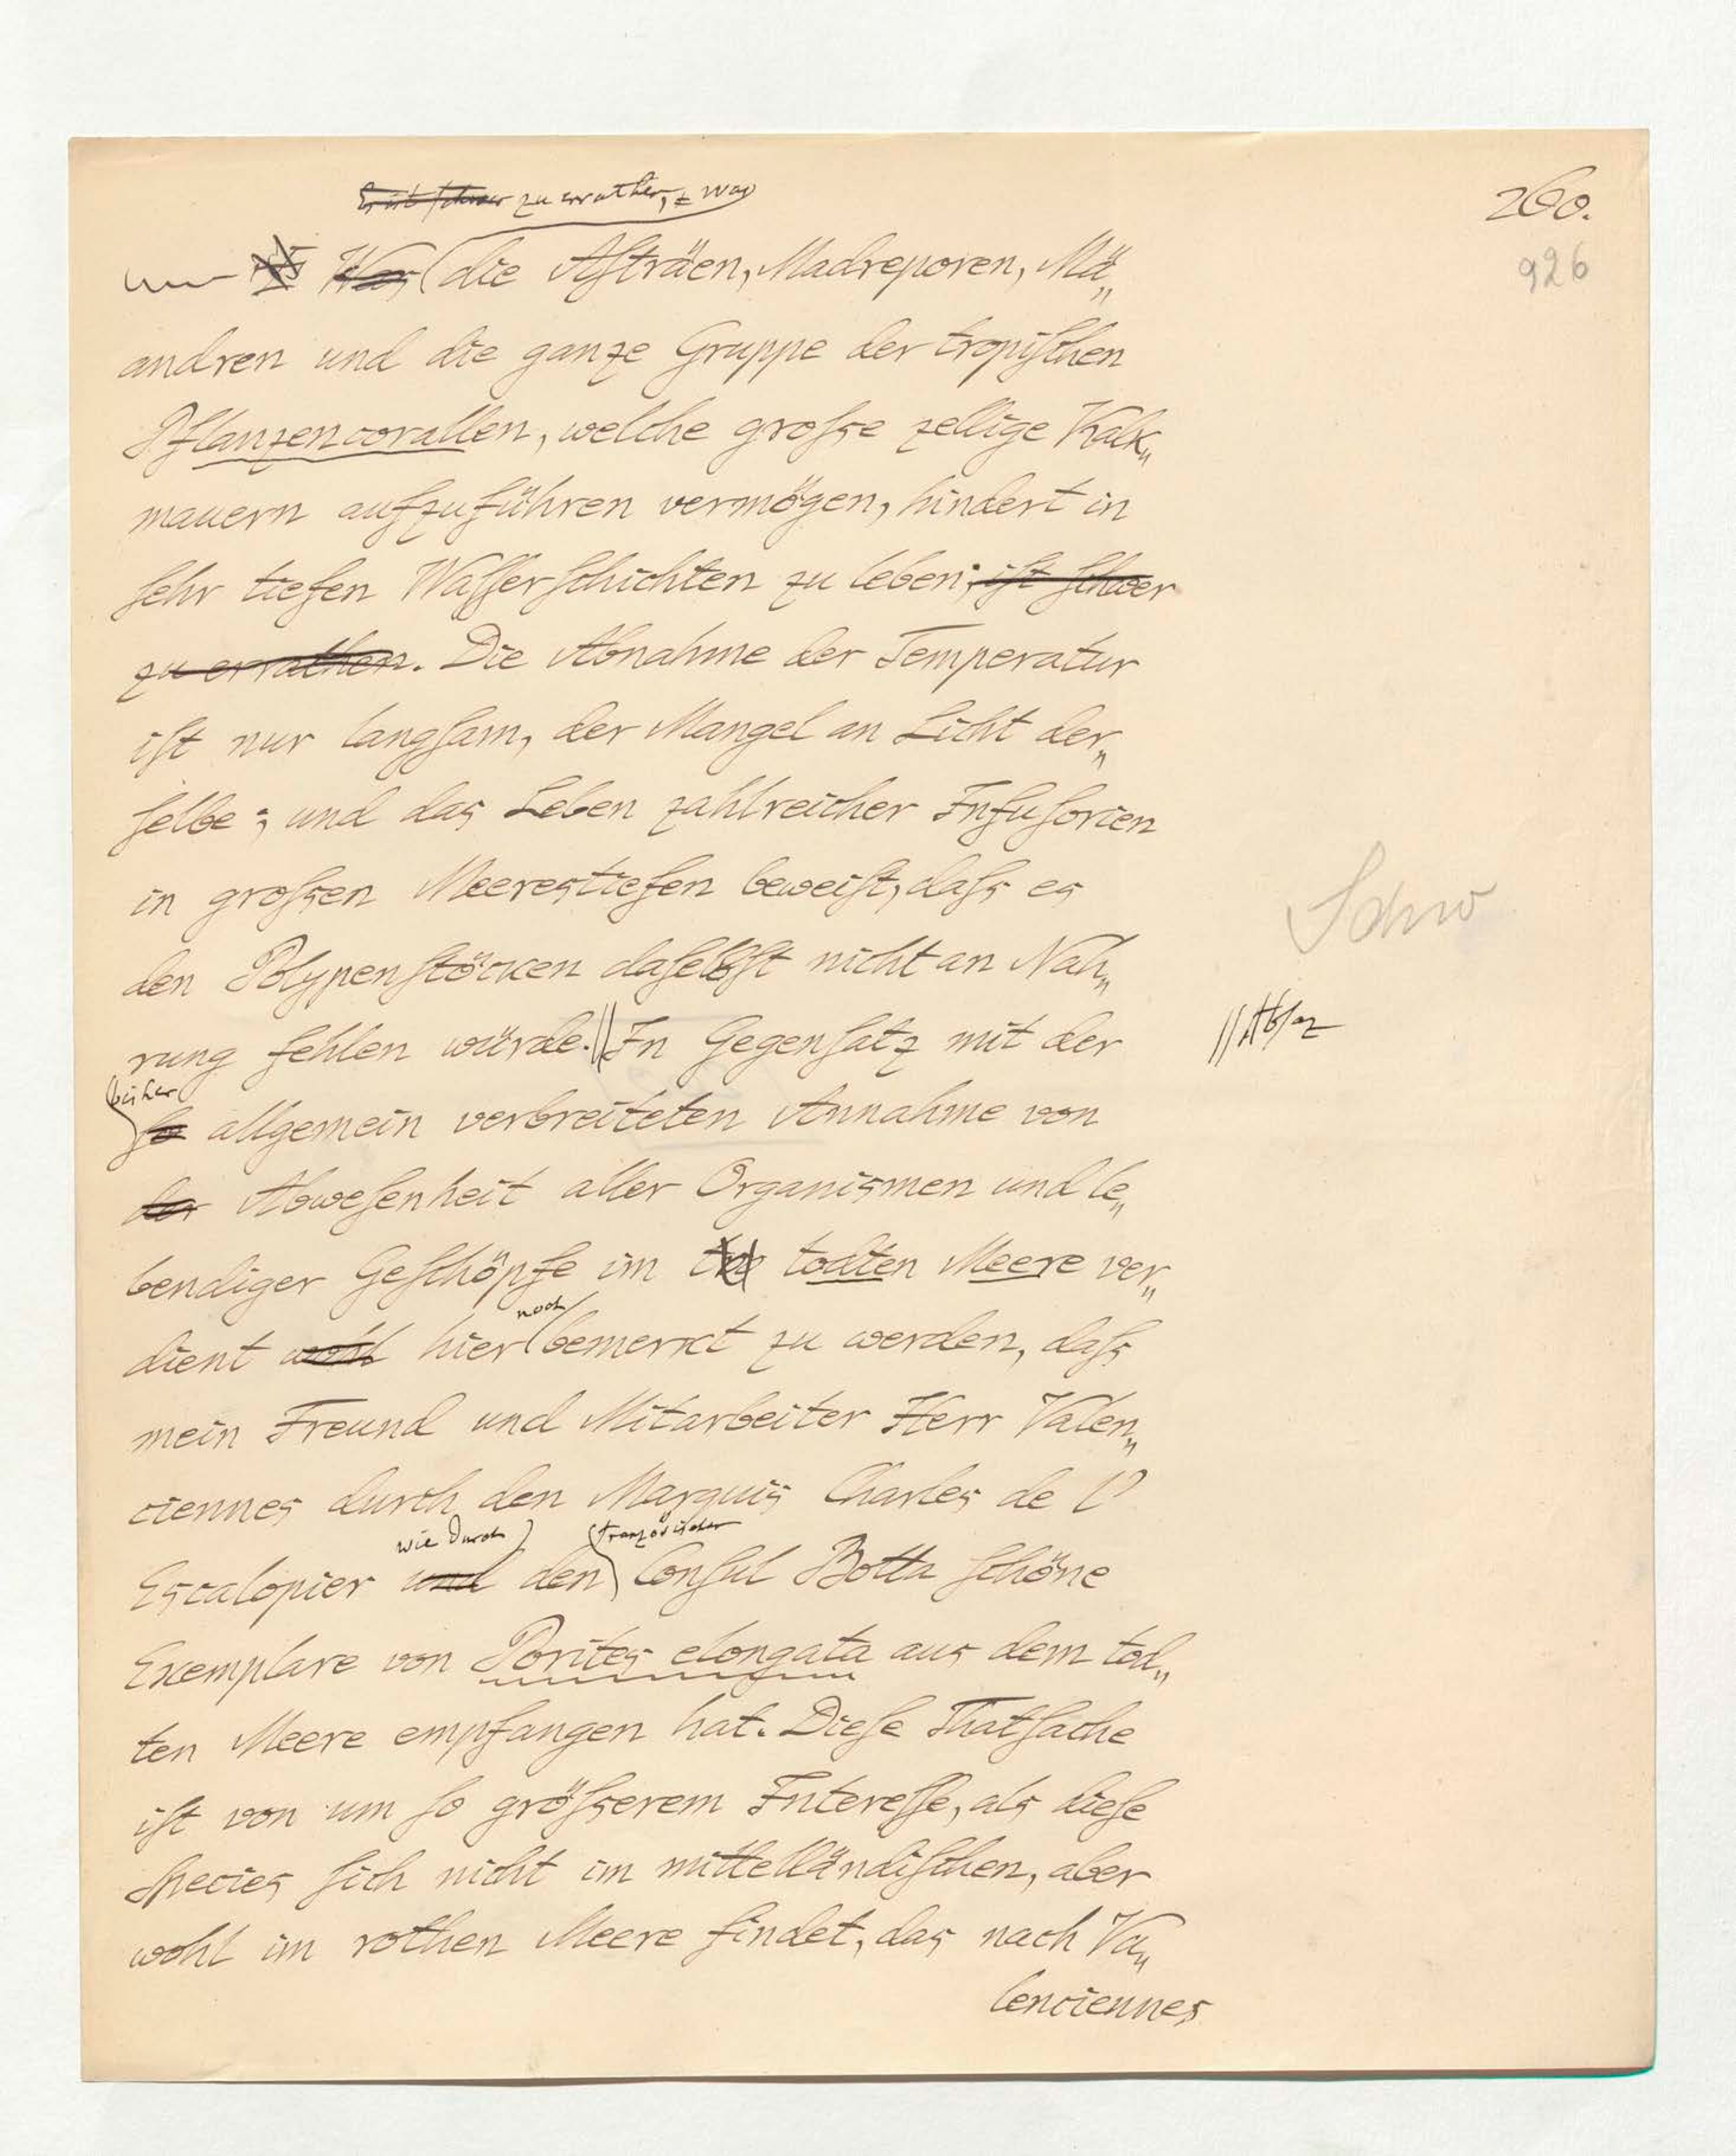 260.
926
Es ist schwer zu errathen, was
Was die Asträen, Madreporen, Mä„
andren und die ganze Gruppe der tropischen
Pflanzencorallen, welche große zellige Kalk„
mauern aufzuführen vermögen, hindert in
sehr tiefen Wasserschichten zu leben; ist schwer
zu errathen. Die Abnahme der Temperatur
ist nur langsam, der Mangel an Licht der„
selbe; und das Leben zahlreicher Infusorien
in großen Meerestiefen beweist, daß es
den Polypenstöcken daselbst nicht an Nah„
rung fehlen würde. // In Gegensatz mit der
// Absaz
Schw
bisher
so allgemein verbreiteten Annahme von
der Abwesenheit aller Organismen und le„
bendiger Geschöpfe im todten Meere ver„
noch
dient wohl hier bemerkt zu werden, daß
mein Freund und Mitarbeiter Herr Valen„
ciennes durch den Marquis Charles de l'
wie durch französischen
Escalopier und den Consul Botta schöne
Exemplare von Porites elongata aus dem tod„
ten Meere empfangen hat. Diese Thatsache
ist von um so größerem Interesse, als diese
Species sich nicht im mittelländischen, aber
wohl im rothen Meere findet, das nach Va„
lenciennes